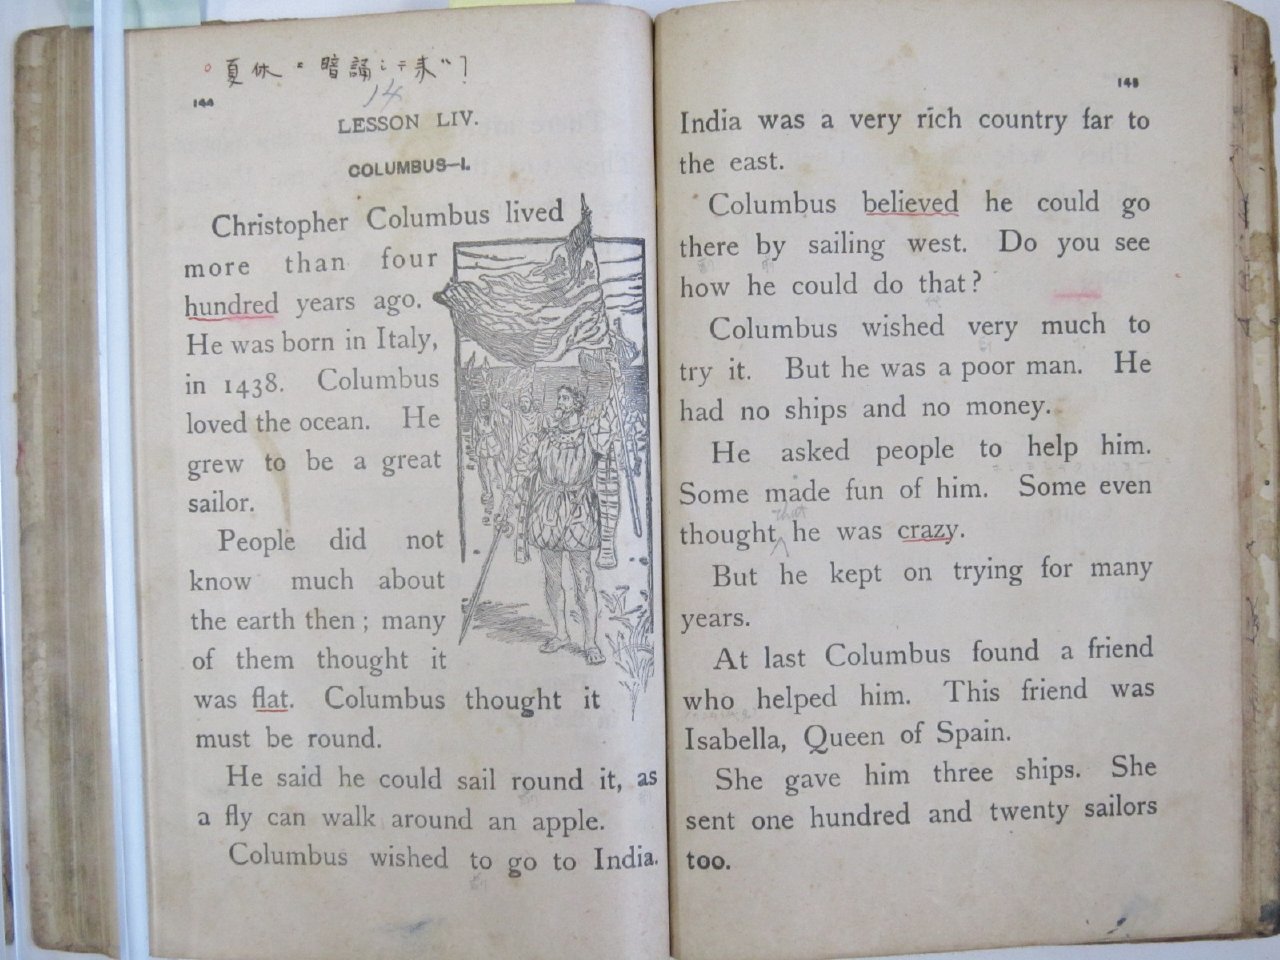 夏休ニ暗誦シテ来い
14
144
LESSON LIV.
COLUMBUS—I.
Christopher Columbus lived
more than four
hundred years ago.
He was born in Italy,
in 1438. Columbus
loved the ocean. He
grew to be a great
sailor.
People did not
know much about
the earth then; many
of them thought it
was flat. Columbus thought it
must be round.
He said he could sail round it, as
a fly can walk around an apple.
Columbus wished to go to India.
145
India was a very rich country far to
the east.
Columbus believed he could go
there by sailing west. Do you see
how he could do that?
Columbus wished very much to
try it. But he was a poor man. He
had no ships and no money.
He asked people to help him.
Some made fun of him. Some even
that
thought he was crazy.
But he kept on trying for many
years.
At last Columbus found a friend
who helped him. This friend was
Isabella, Queen of Spain.
She gave him three ships. She
sent one hundred and twenty sailors
too.